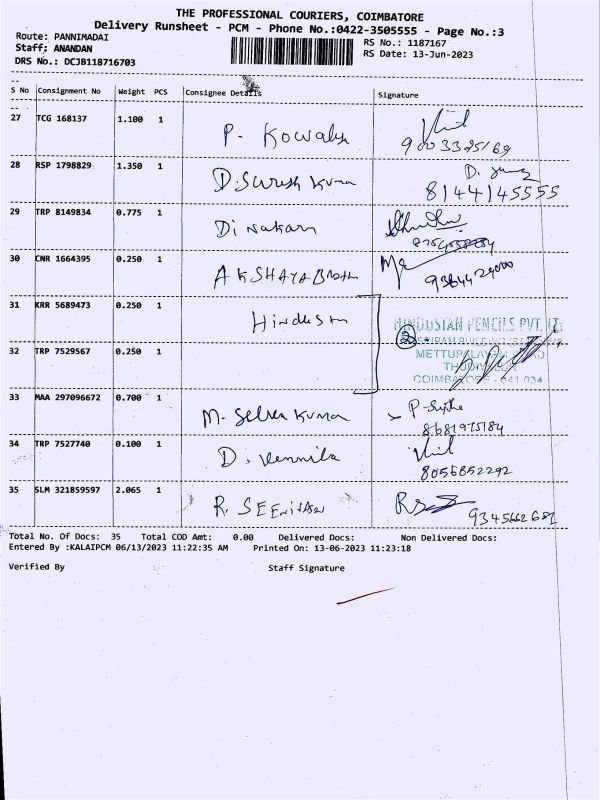 THE PROFESSIONAL COURIERS, COIMBATORE
Delivery Runsheet - PCM - Phone No.:0422-3505555 - Page No.:3
Route: PANNIMADAI
Staff: ANANDAN
DRS No.: DCJB118716703
RS No.: 1187167
RS Date: 13-Jun-2023
S No Consignment No Weight PCS Consignee Details Signature
27 TCG 168137 1.100 1
P. Kowalya
28 RSP 1798829 1.350 1 D. Suresh Kumar
8144145555
29 TRP 8149834 0.775 1 Dinakaran
30 CNR 1664395 0.250 1 AKSHAYA
9364424000
31 KRR 5689473 0.250 1 Hindustan
HINDUSTAN PENCILS PVT. LTD.
2
METTUPALAYAM ROAD
32 TRP 7529567 0.250 1
COIMBATORE - 641 034
33 MAA 297096672 0.700 1 M. Selva Kumar
8681975184
34 TRP 7527740 0.100 1 D. Vennila
8056852292
35 SLM 321859597 2.065 1 R.
9345662681
Total No. Of Docs: 35 Total COD Amt: 0.00 Delivered Docs: Non Delivered Docs:
Entered By :KALAIPCM 06/13/2023 11:22:35 AM Printed On: 13-06-2023 11:23:18
Verified By Staff Signature